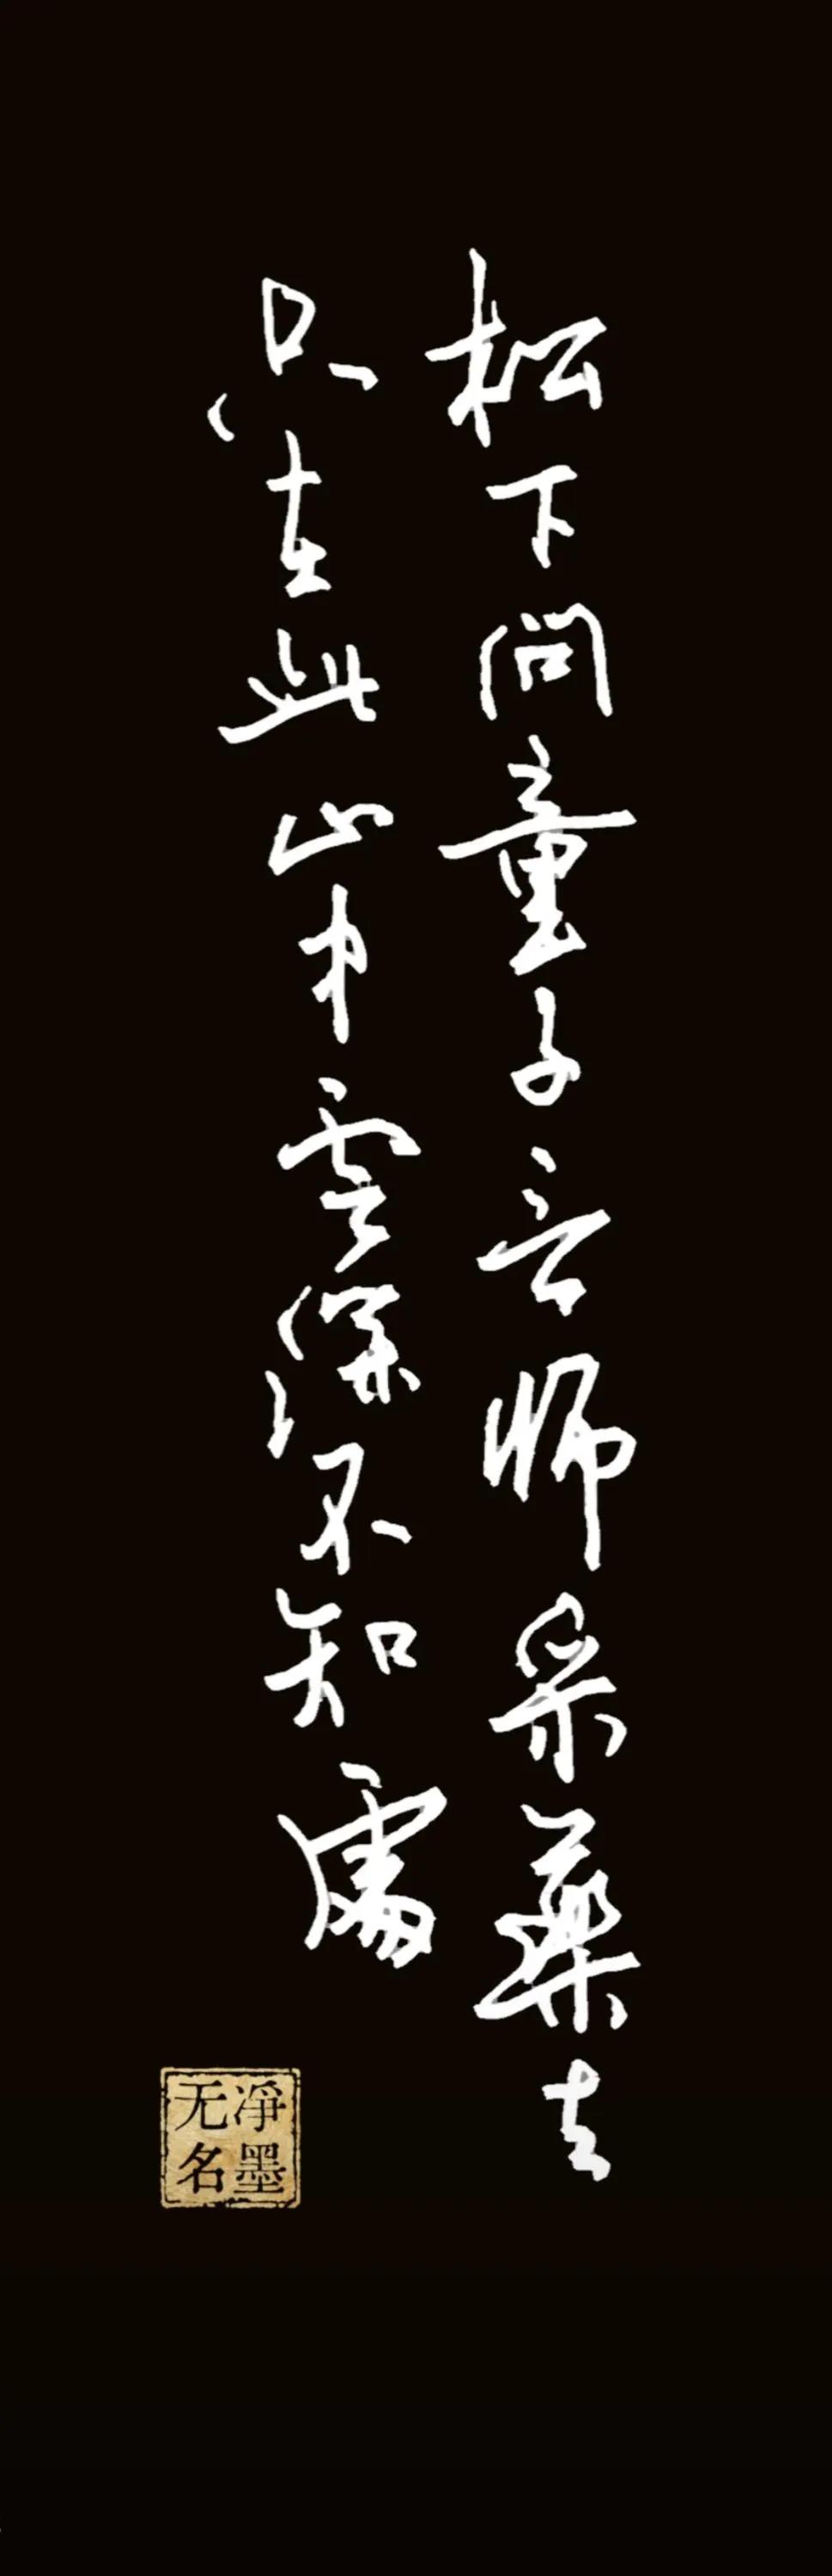 松下問童子言師采藥去
只在此山中雲深不知處
净墨
无名